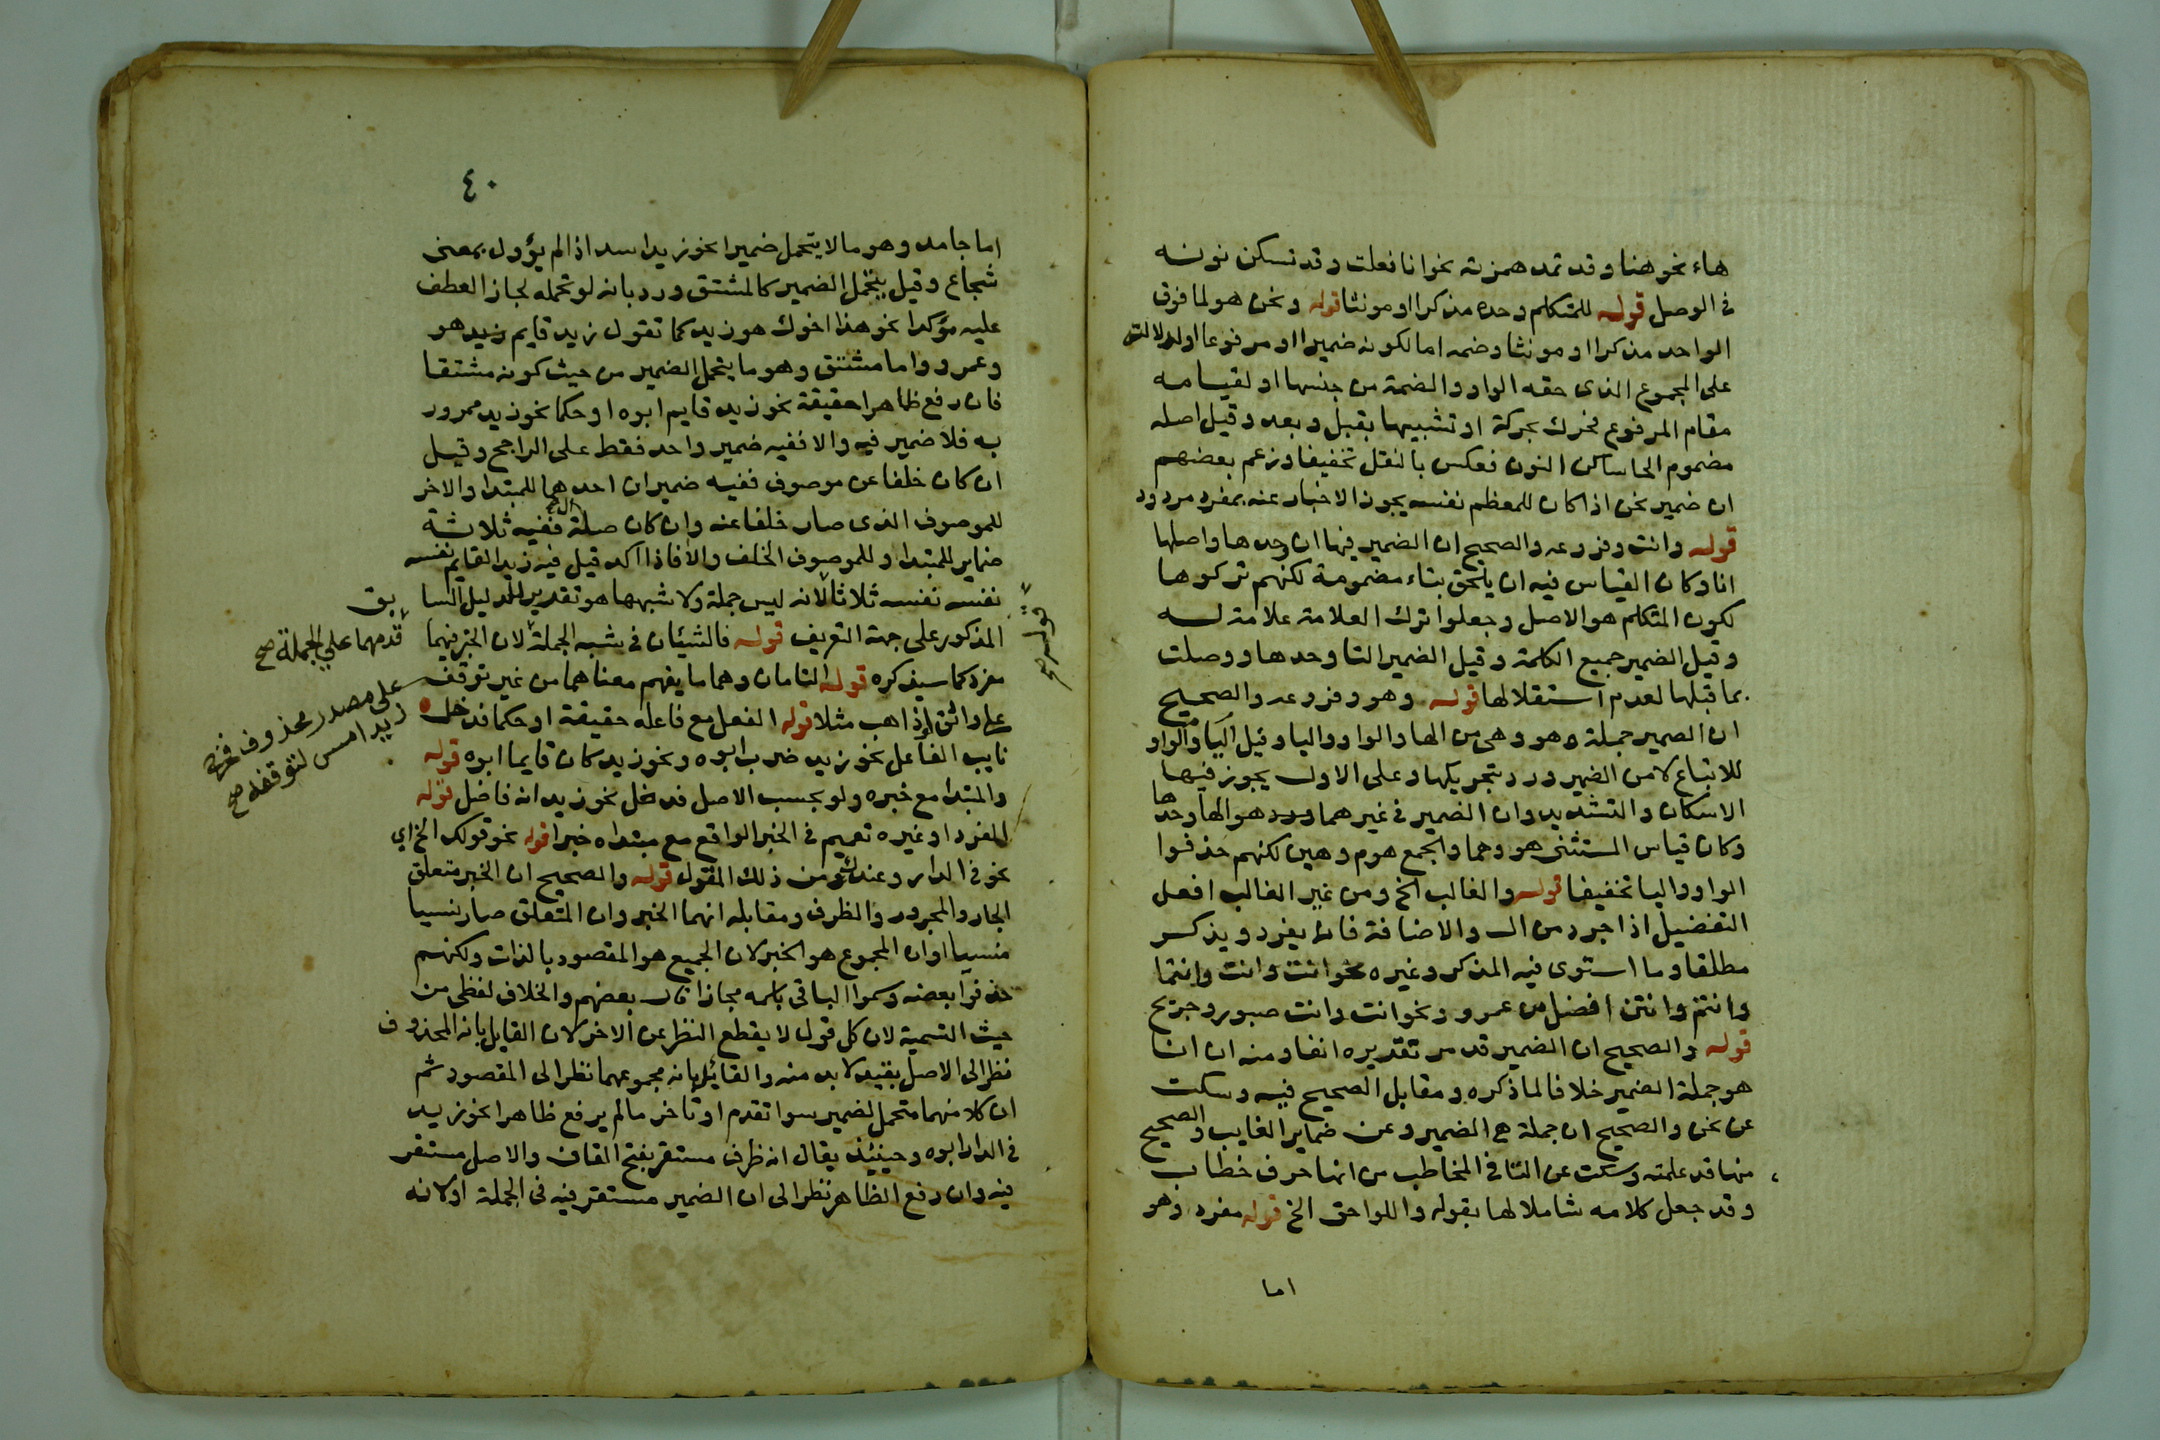 هاء نحو هنا وقد تمد همزته نحو انا فعلت وقد تسكن نونه
في الوصل قوله للمتكلم وحده مذكرا او مونثا قوله ونحن هو لما فوق
الواحد مذكرا او مونثا وضمه اما لكونه ضميرا او مرفوعا اولدلالته
على المجموع الذى حقه الواو والضمة من جنسها او لقيامه
مقام المرفوع فحرك بحركة او تشبيها بقبل وبعد وقيل اصله
مضموم الحا ساكن النون فعكس بالنقل تخفيفا وزعم بعضهم
ان ضمير نحن اذا كان للمعظم نفسه يجوز الاخبار عنه بمفرد مردود
قوله وانت وفروعه والصحيح ان الضمير فيها ان وحدها واصلها
انا وكان القياس فيه ان يلحق بتاء مضمومة لكنهم تركوها
لكون المتكلم هو الاصل وجعلوا ترك العلامة علامة له
وقيل الضمير جميع الكلمة وقيل الضمير التا وحدها ووصلت
بما قبلها لعدم استقلالها قوله وهو وفروعه والصحيح
ان الضمير جملة هو وهى من الها والواو واليا وقيل اليا والواو
للاتباع لا من الضمير ورد بتحريكها وعلى الاول يجوز فيها
الاسكان والتشديد وان الضمير في غيرهما هو الها وحدها
وكان قياس المثنى هو وهما والجمع هوم وهين لكنهم حذفوا
الواو واليا تخفيفا قوله والغالب الخ ومن غير الغالب افعل
التفضيل اذا جرد من ال والاضافة فانه يفرد ويذكر
مطلقا وما استوى فيه المذكر وغيره نحو انت وانت وانتما
وانتم وانتن افضل من عمرو ونحو انت وانت صبور وجريح
قوله والصحيح ان الضمير قد مر تقديره انفا ومنه ان انا
هو جملة الضمير خلافا لما ذكره ومقابل الصحيح فيه وسكت
عن نحن والصحيح ان جملة هي الضمير وعن ضماير الغايب والصحيح
منها قد علمته وسكت عن التا في المخاطب من انها حرف خطاب
وقد جعل كلامه شاملا لها بقوله واللواحق الخ قوله مفرد وهو
اما
٤٠
اما جامد وهو ما لا يتحمل ضميرا نحو زيد اسد اذا لم يؤول بمعنى
شجاع وقيل يتحمل الضمير كالمشتق ورد بانه لو تحمله لجاز العطف
عليه مؤكدا نحو هذا اخوك هو زيد كما تقول زيد قايم هو
وعمرو واما مشتق وهو ما يتحمل الضمير من حيث كونه مشتقا
فان رفع ظاهرا حقيقة نحو زيد قايم ابوه او حكما نحو زيد ممرور
به فلا ضمير فيه والا ففيه ضمير واحد فقط على الراجح وقيل
ان كان خلفا عن موصوف ففيه ضميران احدهما للمبتدا والاخر
للموصوف الذى صار خلفا عنه وان كان صلة ال ففيه ثلاثة
ضماير للمبتدا وللموصوف الخلف ولال فاذا اكد قيل فيه زيد القايم نفسه
نفسه نفسه ثلاثا لانه ليس جملة ولا شبهها هو تقدير للدليل السا بق
المذكور على جهة التعريف قوله فالشيئان في شبه الجملة لان الخبر فيهما
قدمهما علي الجملة صح
مفرد كما سيذكره قوله التامان وهما ما يفهم معناهما من غير توقف
على مصدر محذوف فخرج
زيد امس لتوقفه صح
قوله صح
قوله الفعل مع فاعله حقيقة او حكما فدخل
نايب الفاعل نحو زيد ضرب ابوه ونحو زيد كان قايما ابوه قوله
والمبتدا مع خبره ولو بحسب الاصل فدخل نحو زيد انه فاضل قوله
المفرد او غيره تعميم في الخبر الواقع مع مبتداه خبرا قوله نحو قولك الخ اي
نحو في الدار وعندك من ذلك المقول قوله والصحيح ان الخبر متعلق
الجار والمجرور والظرف ومقابله انهما الخبر وان المتعلق صار نسيا
منسيا او ان المجموع هو الخبر لان الجميع هو المقصود بالذات ولكنهم
حذفوا بعضه وسموا الباقي باسمه مجازا قال بعضهم والخلاف لفظي من
حيث التسمية لان كل قول لا يقطع النظر عن الاخر لان القايل بانه المحذوف
نظر الى الاصل بقيد لا بد منه والقائل بانه مجموعهما نظر الى المقصود ثم
ان كلا منهما متحمل لضمير سوا تقدم او تاخر ما لم يرفع ظاهرا نحو زيد
في الدار ابوه وحينئذ يقال انه ظرف مستقر بفتح القاف والاصل مستقر
فيه وان رفع الظاهر نظرا الى ان الضمير مستقر فيه في الجملة او لانه